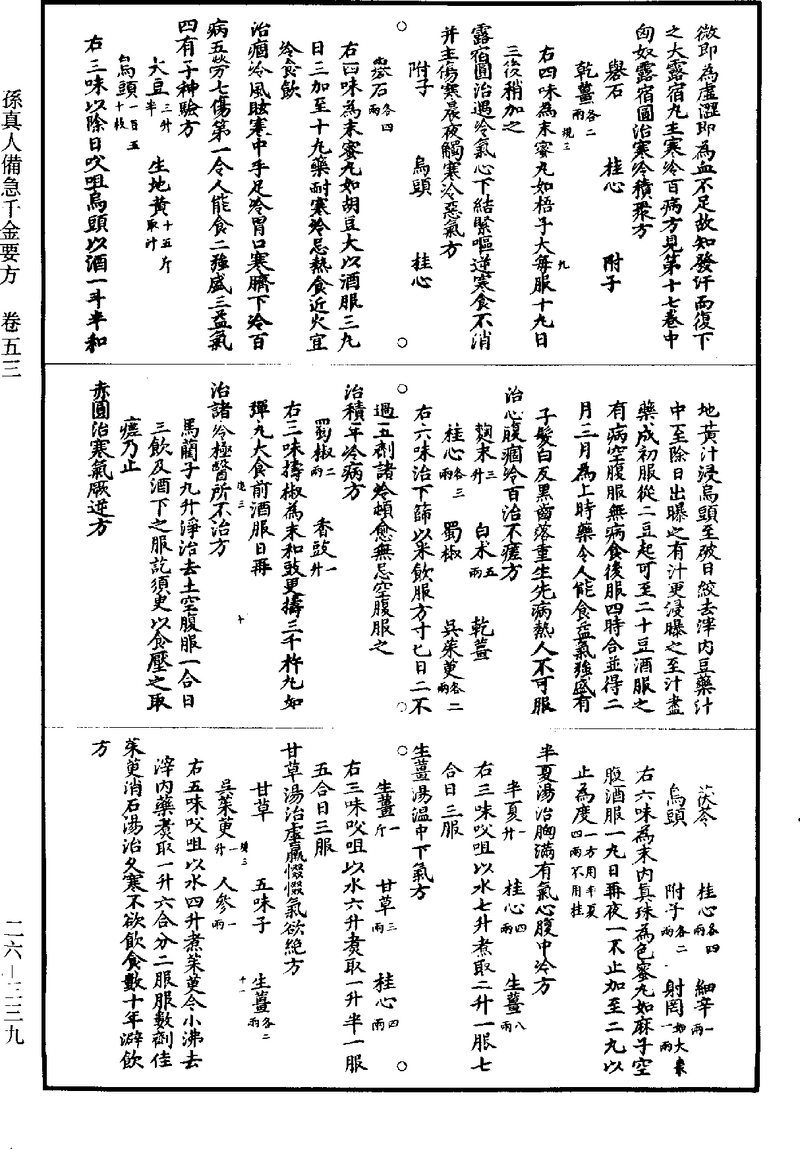 孫真人備急千金要方　卷五三
二六—三三九
微即為虛澀即為血不足故知發汗而復下
之大露宿丸主寒冷百病方見第十七卷中
匈奴露宿圓治寒冷積聚方
礜石　桂心　附子
乾薑各二兩
右四味為末蜜丸如梧子大每服十丸日
三後稍加之
露宿圓治遇冷氣心下結緊嘔逆寒食不消
并主傷寒晨夜觸寒冷惡氣方
附子　烏頭　桂心
礜石各四兩
右四味為末蜜丸如胡豆大以酒服三丸
日三加至十丸藥耐寒冷忌熱食近火宜
冷食飲
治痼冷風眩寒中手足冷胃口寒臍下冷百
病五勞七傷第一令人能食二強盛三益氣
四有子神驗方
大豆三升半　生地黃十五斤取汁
烏頭一百五十枚
右三味以除日㕮咀烏頭以酒一斗半和
地黃汁浸烏頭至破日絞去滓內豆藥汁
中至除日出曝之有汁更浸曝之至汁盡
藥成初服從二豆起可至二十豆酒服之
有病空腹服無病食後服四時合並得二
月三月為上時藥令人能食益氣強盛有
子髮白反黑齒落重生先病熱人不可服
治心腹痼冷百治不瘥方
麴末三升　白朮五兩　乾薑
桂心各三兩　蜀椒　吳茱萸各二兩
右六味治下篩以米飲服方寸匕日二不
過五劑諸冷頓愈無忌空腹服之
治積年冷病方
蜀椒二兩　香豉一升
右三味擣椒為末和豉更擣三千杵丸如
彈丸大食前酒服日再
治諸冷極醫所不治方
馬藺子九升淨治去土空腹服一合日
三飲及酒下之服訖須臾以食壓之取
瘥乃止
赤圓治寒氣厥逆方
茯苓　桂心各四兩　細辛一兩
烏頭　附子各二兩　射罔如大棗一兩
右六味為末內真珠為色蜜丸如麻子空
腹酒服一丸日再夜一不止加至二丸以
止為度一方用半夏四兩不用桂
半夏湯治胸滿有氣心腹中冷方
半夏一升　桂心四兩　生薑八兩
右三味㕮咀以水七升煮取二升一服七
合日三服
生薑湯溫中下氣方
生薑一斤　甘草三兩　桂心四兩
右三味㕮咀以水六升煮取一升半一服
五合日三服
甘草湯治虛羸惙惙氣欲絕方
甘草　五味子　生薑各二兩
吳茱萸一升　人參一兩
右五味㕮咀以水四升煮茱萸令小沸去
滓內藥煮取一升六合分二服服數劑佳
茱萸消石湯治久寒不欲飲食數十年澼飲
方